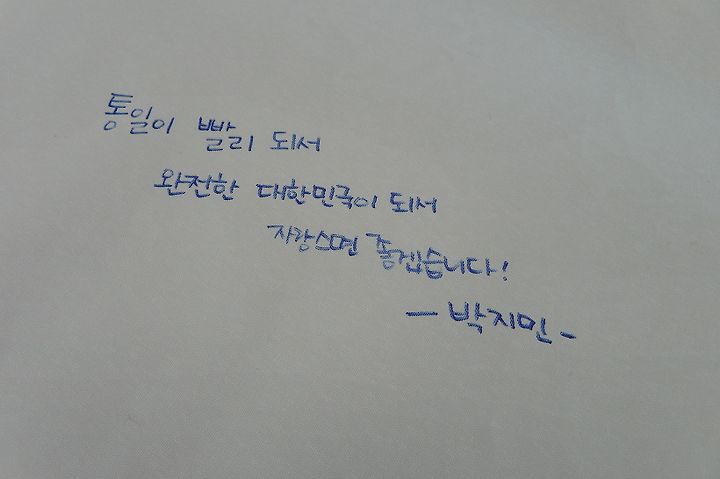 통일이 빨리 되서
완전한 대한민국이 되서
자랑스면 좋겠습니다!
- 박지민 -